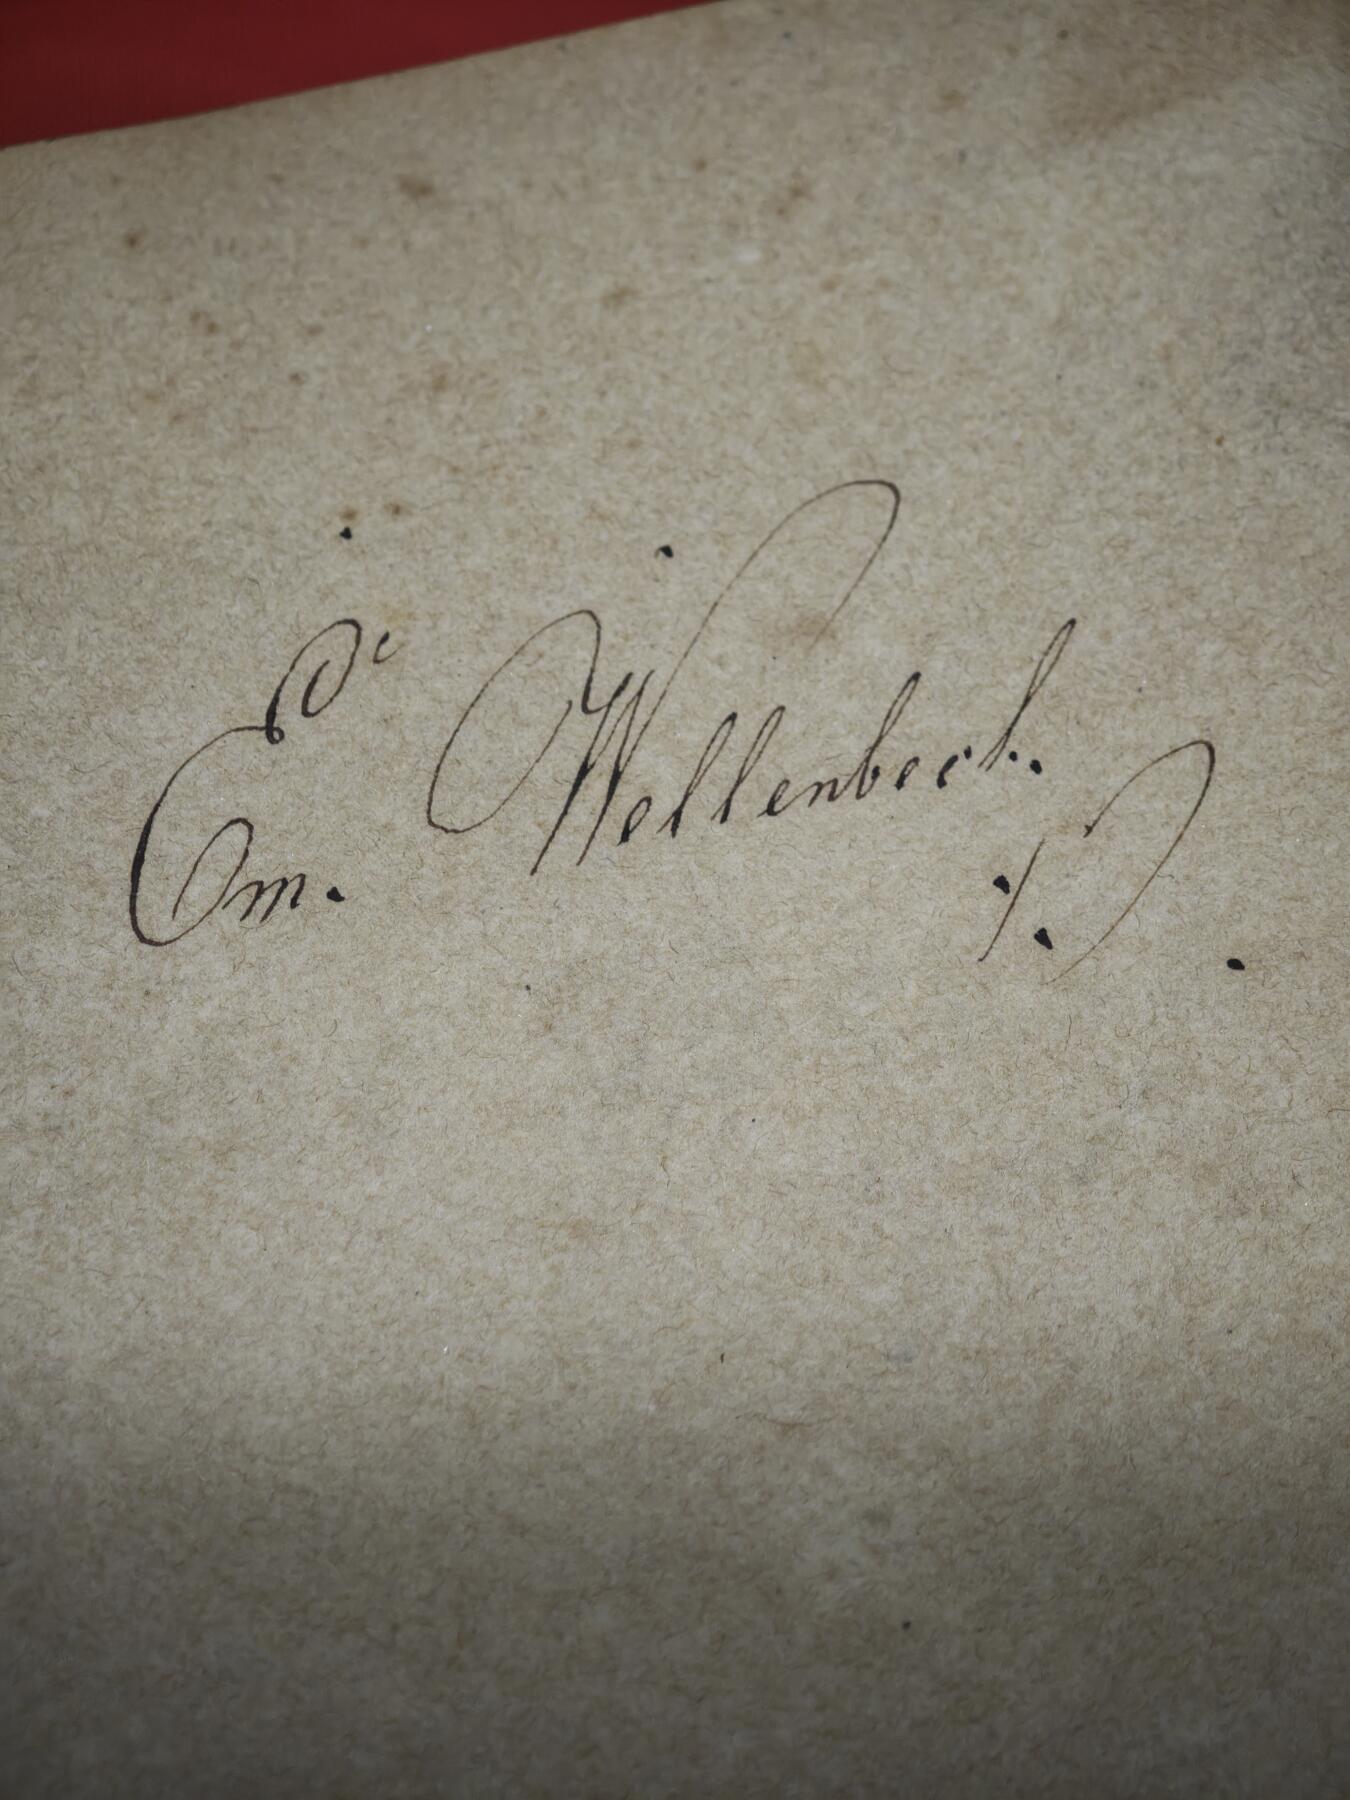 Em. Wellenbeck.